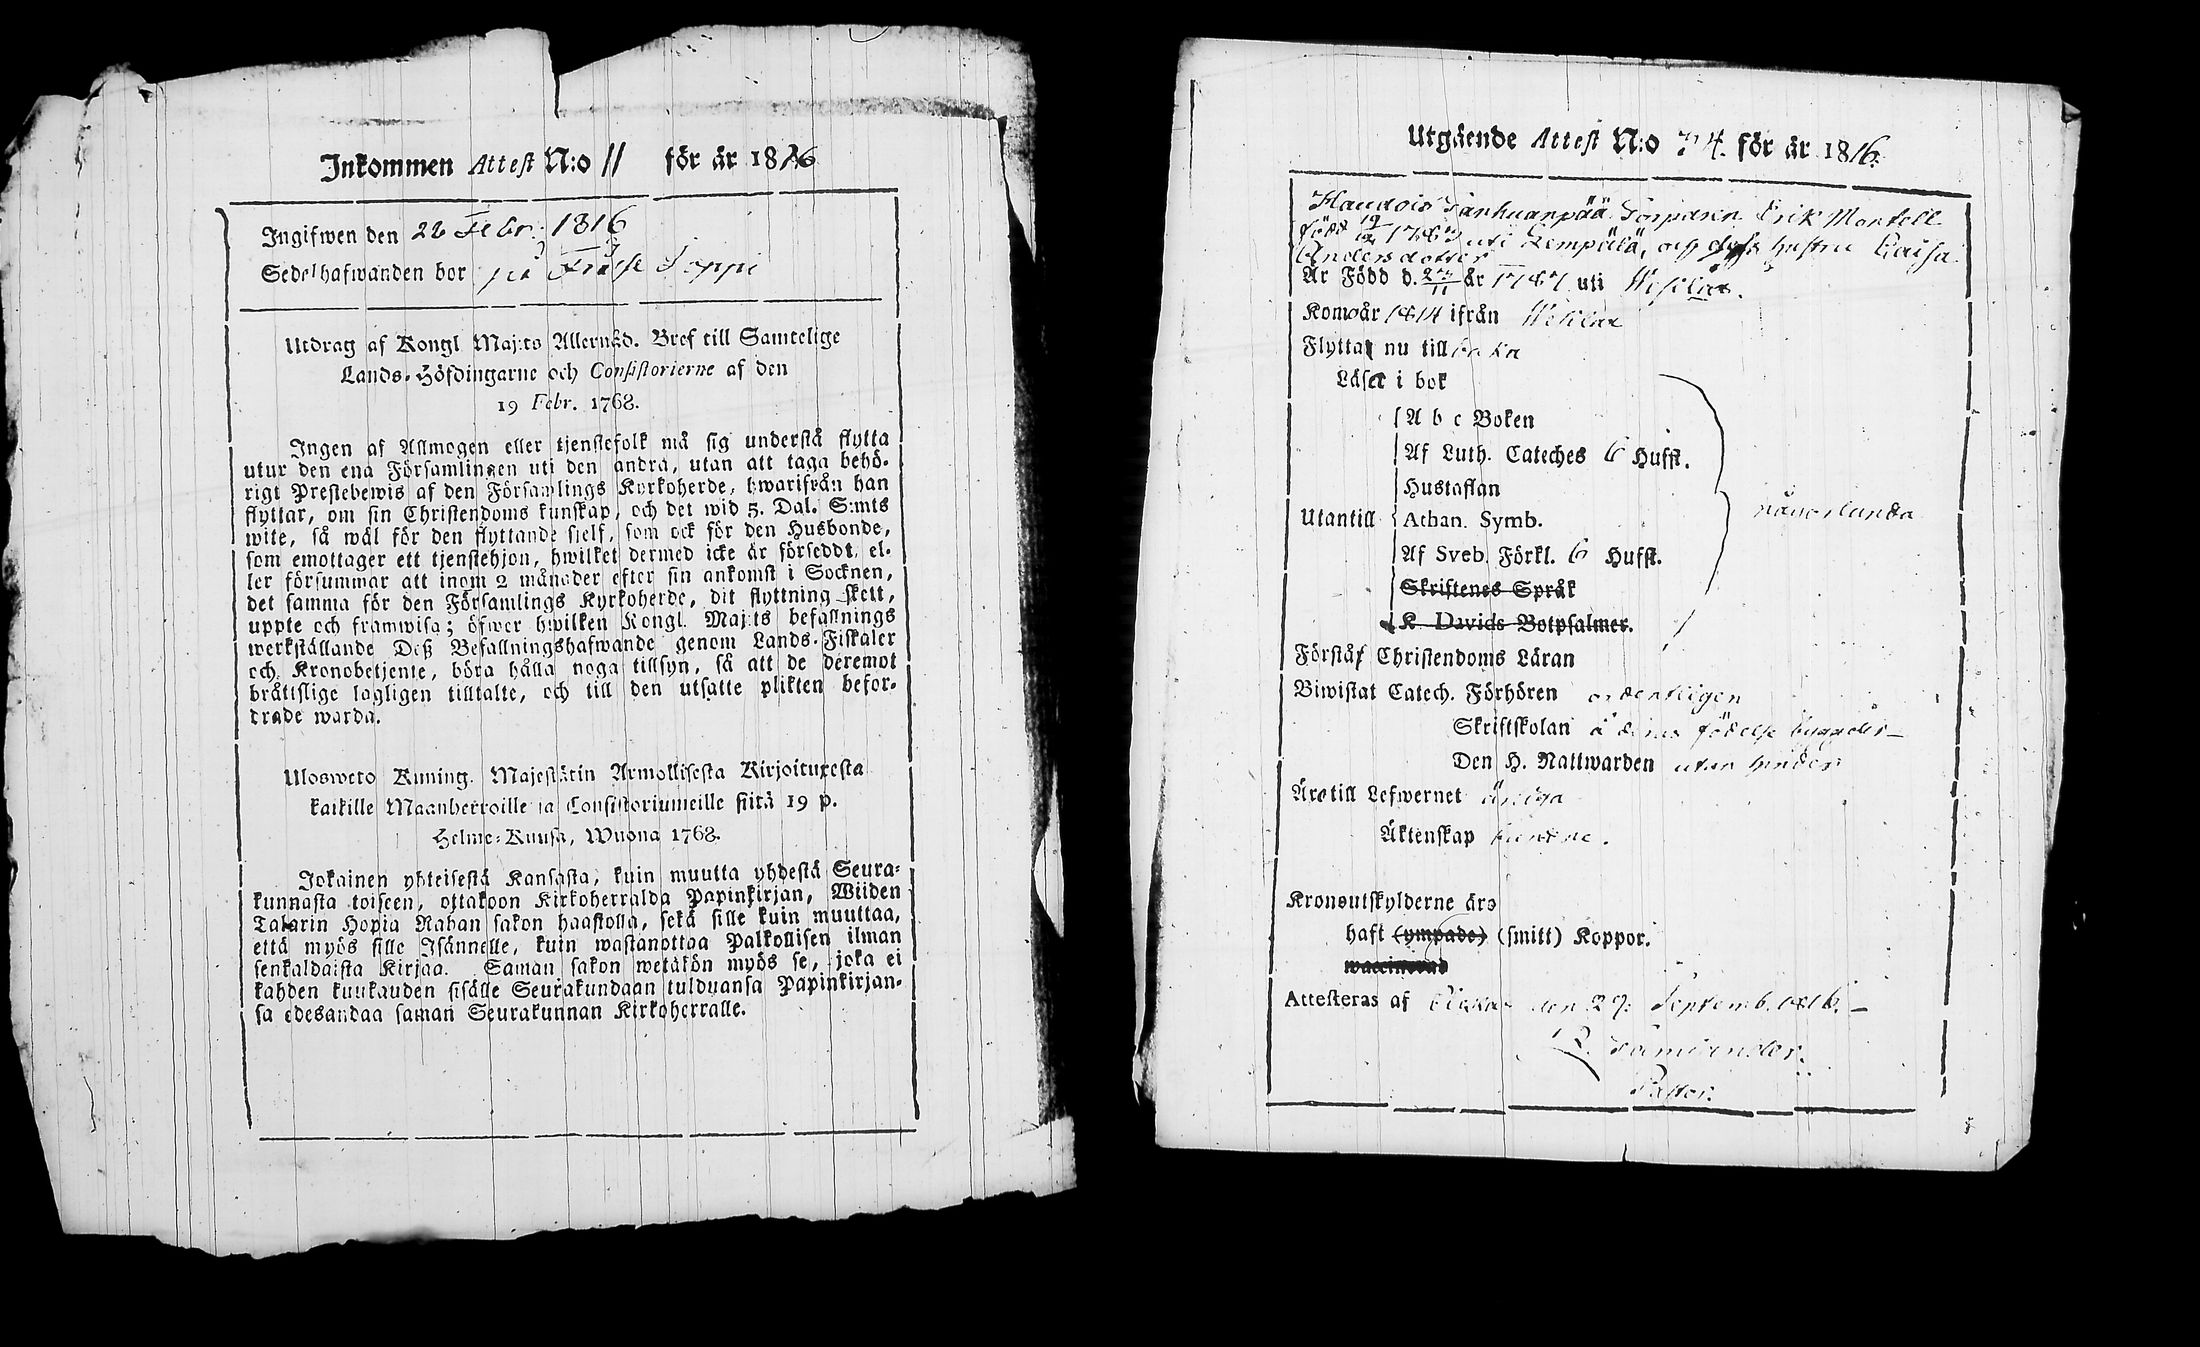 Inkommen Attest N:o 11 för år 1816
Ingifwen den 28 Febr. 1816
Sedelhafwanden bor på Soppi
Utdrag af Kongl Maj:ts Allernåd. Bref till Samtelige
Lands-Höfdingarne och Consistorierne af den
19 Febr. 1768.
Ingen af Allmogen eller tjenstefolk må sig understå flytta
utur den ena Församlingen uti den andra, utan att taga behö-
rigt Prestebewis af den Församlings Kyrkoherde, hwarifrån han
flyttar, om sin Christendoms kunskap, och det wid 5. Dal. S:mts
wite, så wäl för den flyttande sjelf, som ock för den Husbonde,
som emottager ett tjenstehjon, hwilket dermed icke är försedt, el-
ler försummar att inom 2 månader efter sin ankomst i Socknen,
det samma för den Församlings Kyrkoherde, dit flyttning skett,
uppte och framwisa; öfwer hwilken Kongl. Maj:ts befallnings
werkställande Deß Befallningshafwande genom Lands-Fiskaler
och Kronobetjente, böra hålla noga tillsyn, så att de deremot
bråttslige lagligen tilltalte, och till den utsatte plikten befor-
drade warda.
Ulosweto Kuning. Majestätin Armollisesta Kirjoituxesta
kaikille Maanherroille ja Consistoriumeille siitä 19 p.
Helme-Kuusa, Wuona 1768.
Jokainen yhteisestä Kansasta, kuin muutta yhdestä Seura-
kunnasta toiseen, ottakoon Kirkoherralda Papinkirjan, Wiiden
Talarin Hopia Rahan sakon haastolla, sekä sille kuin muuttaa,
että myös sille Isännelle, kuin wastanottaa Palkollisen ilman
senkaldaista Kirjaa. Saman sakon wetäkön myös se, joka ei
kahden kuukauden sisälle Seurakundaan tulduansa Papinkirjan-
sa edesandaa saman Seurakunnan Kirkoherralle.
Utgående Attest N:o 74. för år 1816.
Torparen Erik Montell
född 19/12 1787 uti Lempälä, och dess hustru Caisa
Andersdotter
Är Född d. 27/11 år 1787 uti Wesilax.
Kom år 1814 ifrån Wesilax
Flyttar nu tillbaka
Läser i bok
A b c Boken
Af Luth. Cateches 6 Hufst.
Hustaflan
Utantill Athan. Symb.
Af Sveb. Förkl. 6 Hufst.
Skriftenes Språk
K. Davids Botpsalmer.
någorlunda
Förstår Christendoms Läran
Biwistat Catech. Förhören ordentligen
Skriftskolan å deras födelse bygder
Den H. Nattwarden utan hinder
Äro till Lefwernet ärliga
Äktenskap bundne.
Kronoutskylderne äro
haft (ympade) (smitt) Koppor.
waccinerad
Attesteras af den 29. Septemb. 1816.
Pastor.